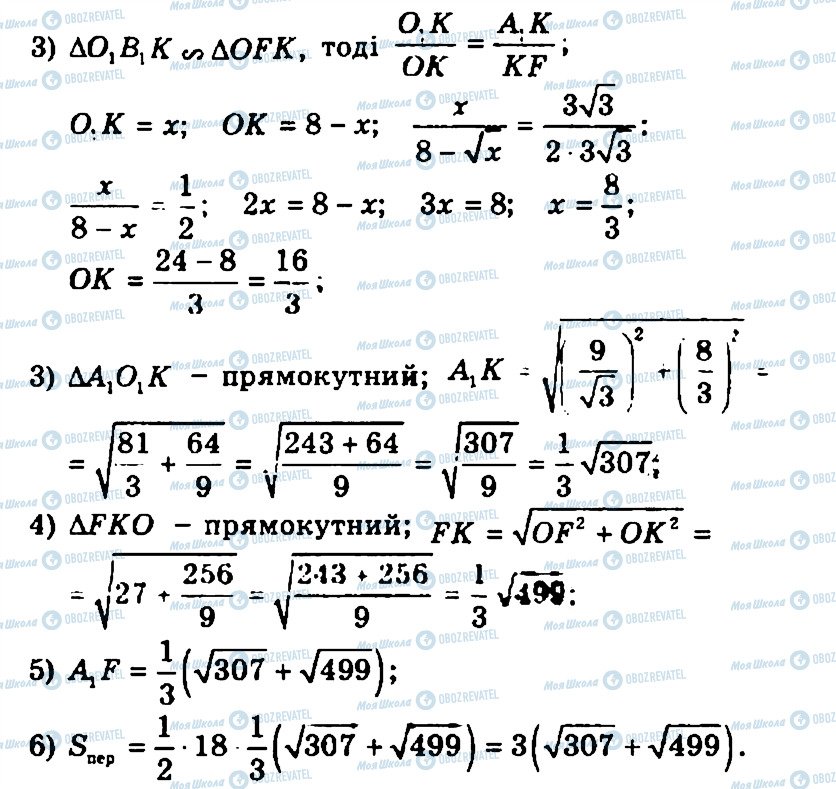 3) ΔO₁B₁K ∽ ΔOFK, тоді O₁K/OK = A₁K/KF;
O₁K = x; OK = 8 − x; x/(8 − √x) = 3√3/(2 · 3√3);
x/(8 − x) = 1/2; 2x = 8 − x; 3x = 8; x = 8/3;
OK = (24 − 8)/3 = 16/3;
3) ΔA₁O₁K – прямокутний; A₁K = √((9/√3)² + (8/3)²) =
= √(81/3 + 64/9) = √((243 + 64)/9) = √(307/9) = 1/3 √307;
4) ΔFKO – прямокутний; FK = √(OF² + OK²) =
= √(27 + 256/9) = √((243 + 256)/9) = 1/3 √499;
5) A₁F = 1/3(√307 + √499);
6) Sпер = 1/2 · 18 · 1/3(√307 + √499) = 3(√307 + √499).
МояШкола OBOZREVATEL